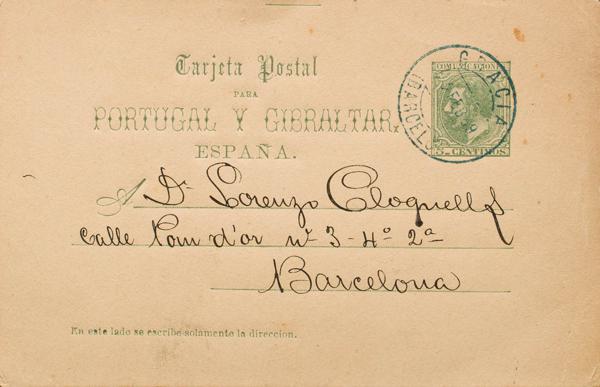 Tarjeta Postal
PARA
PORTUGAL Y GIBRALTAR.
ESPAÑA.
COMUNICACIONES
5 CENTIMOS
GRACIA
(BARCEL
A Dn Lorenzo Cloquells
calle Pom d'or nº 3-4º 2ª
Barcelona
En este lado se escribe solamente la direccion.